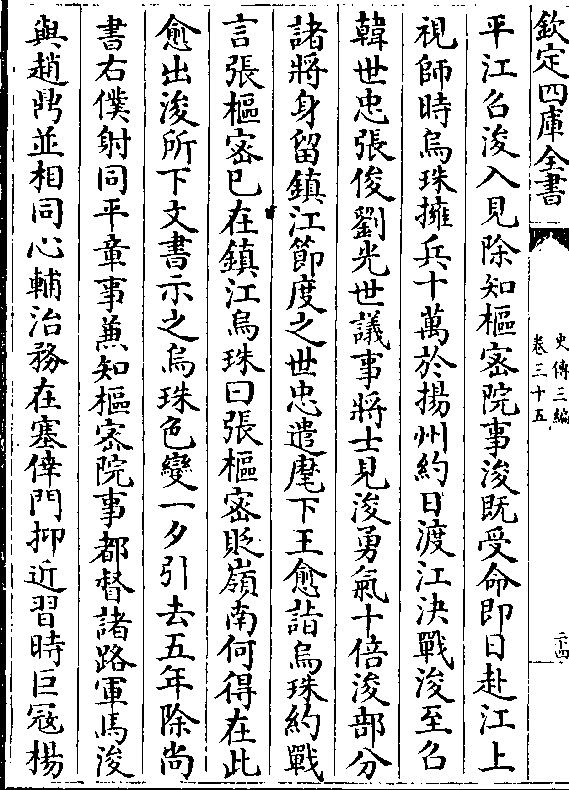 欽定四庫全書
史傳三編
卷三十五
二十四
平江召浚入見除知樞密院事浚既受命即日赴江上
視師時烏珠擁兵十萬於揚州約日渡江決戰浚至召
韓世忠張俊劉光世議事將士見浚勇氣十倍浚部分
諸將身留鎮江節度之世忠遣麾下王愈詣烏珠約戰
言張樞密已在鎮江烏珠曰張樞密貶嶺南何得在此
愈出浚所下文書示之烏珠色變一夕引去五年除尚
書右僕射同平章事兼知樞密院事都督諸路軍馬浚
與趙鼎並相同心輔治務在塞倖門抑近習時巨冦楊